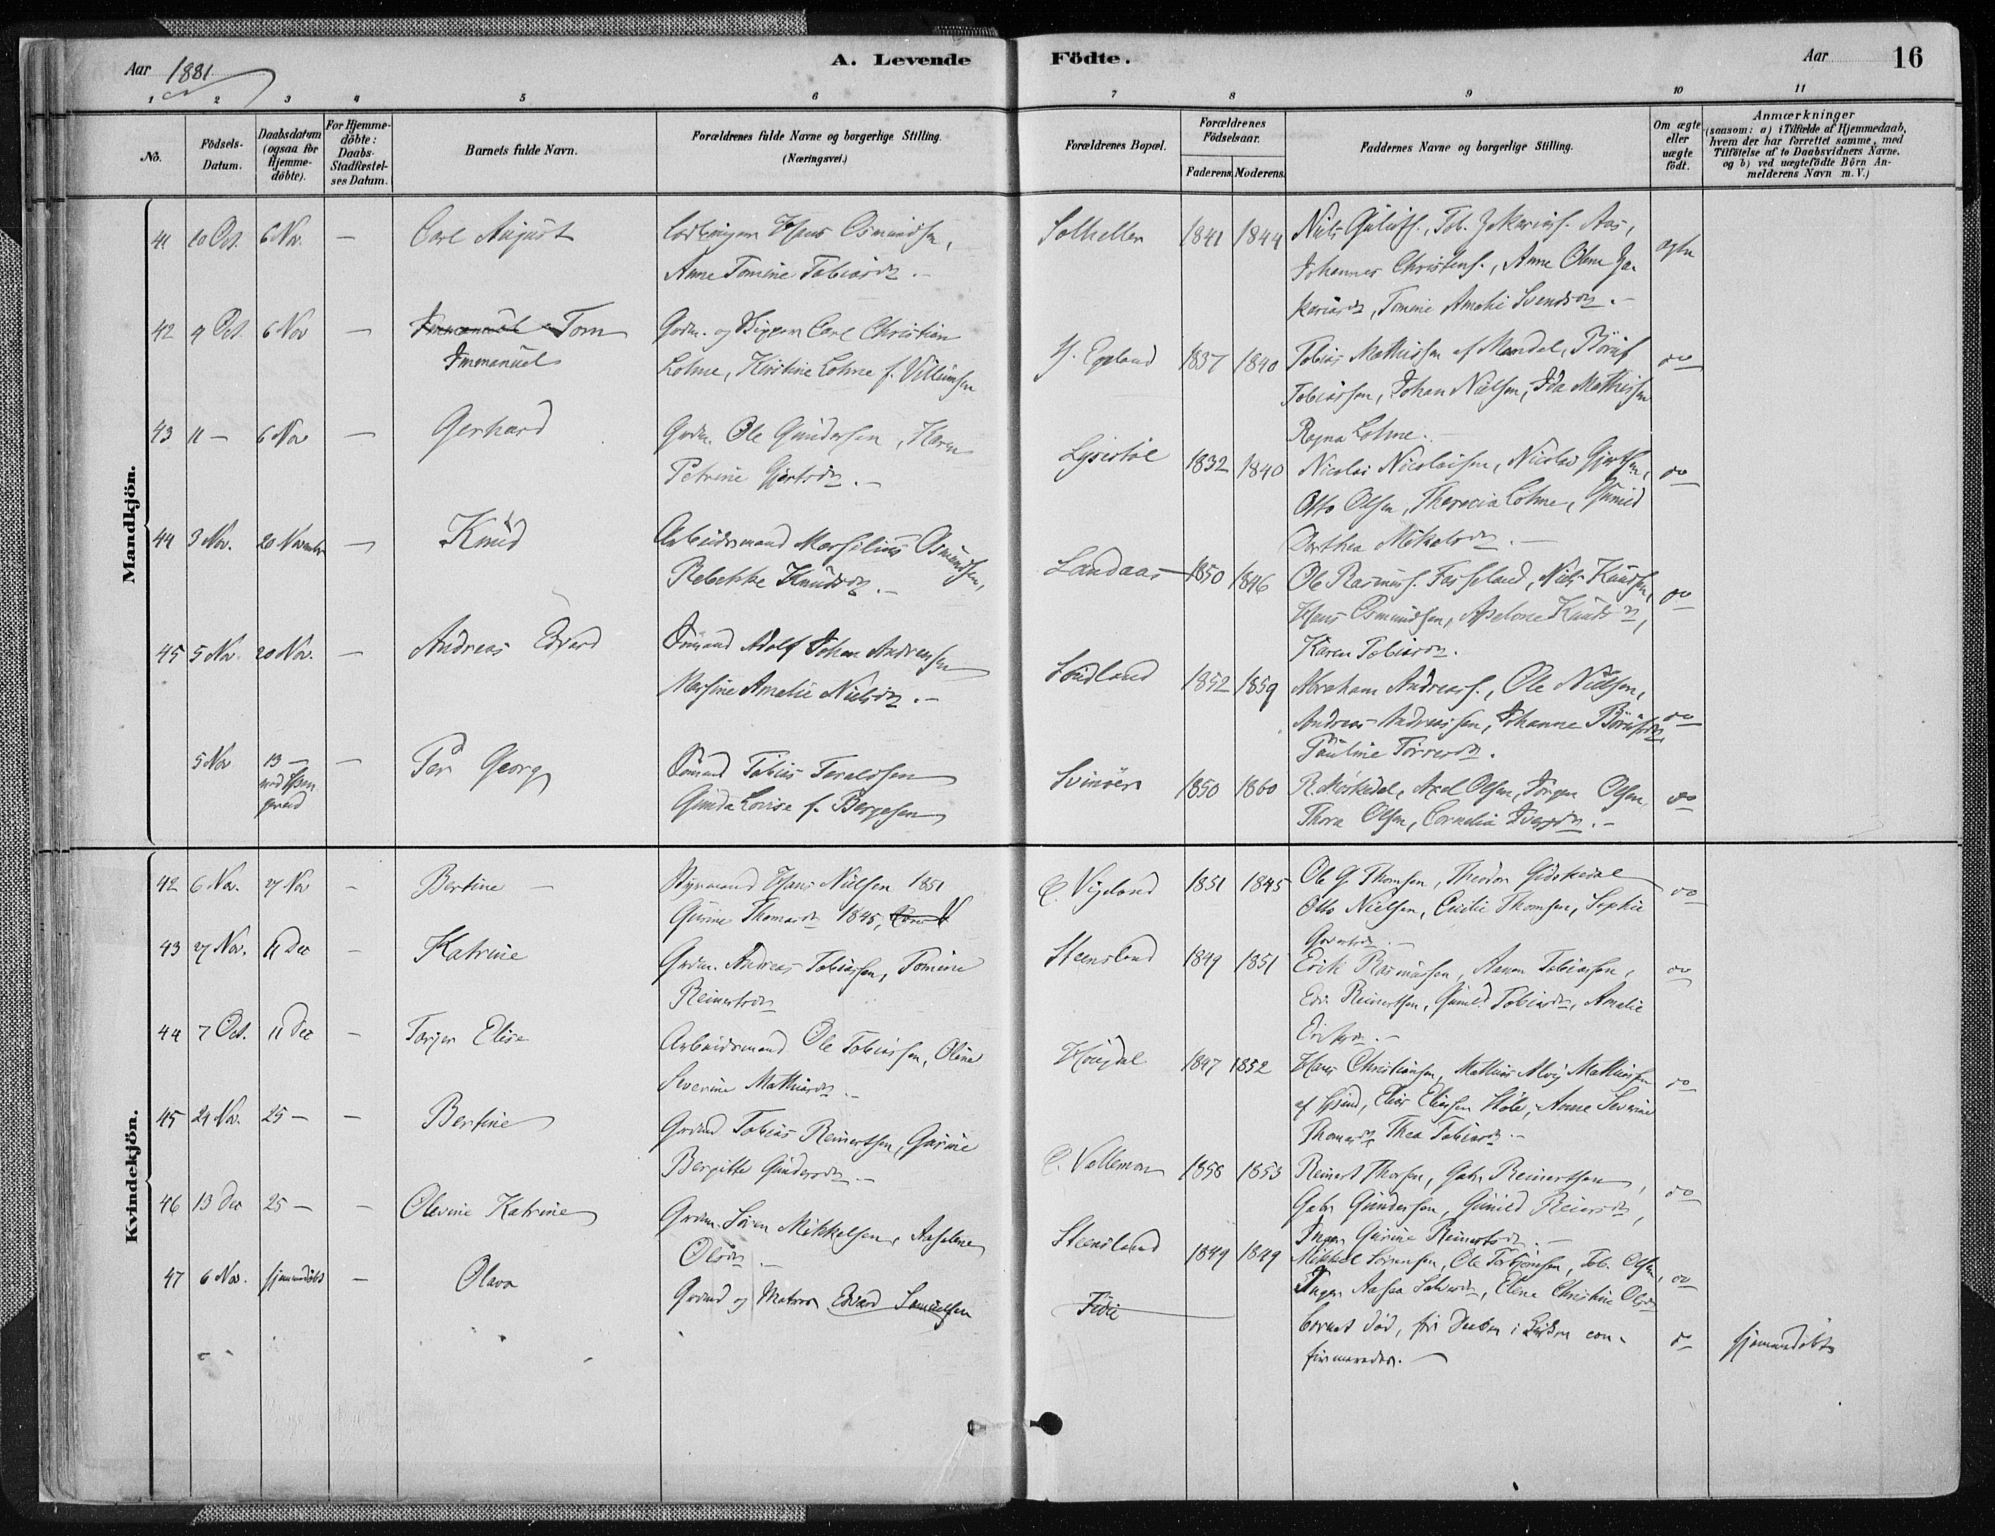 Aar 1881
A. Levende Födte.
Aar 16
1 2 3 4 5 6 7 8 9 10 11
No.
Födsels-Datum.
Daabsdatum (ogsaa for Hjemme-döbte).
For Hjemme-döbte: Daabs-Stadfæstel-ses Datum.
Barnets fulde Navn.
Forældrenes fulde Navne og borgerlige Stilling.
(Næringsvei.)
Forældrenes Bopæl.
Forældrenes Födselsaar.
Faderens. Moderens.
Faddernes Navne og borgerlige Stilling.
Om ægte eller uægte födt.
Anmærkninger
(saasom: a) i Tilfælde af Hjemmedaab, hvem der har forrettet samme, med Tilföielse af to Daabsvidners Navne, og b) ved uægtefödte Börn An-melderens Navn m. V.)
Mandkjön.
41 10 Oct. 6 Nov. — Carl August
Hans Osmundsen,
Anne Tomine Tobiasd. —
Solhellen 1841 1844
Johannes Christens., Anne Oline Za-
kariasd, Tomine Amalie Svendsd. —
ægte
42 9 Oct. 6 Nov — Immanuel Tom
Immanuel
Grdm. og Skipper Carl Christian
Lohne, Kirstine Lohne f. Villumsen
Y. Egeland 1837 1840 Tobias Mathissen af Mandal, Böruf
Tobiassen, Johan Nielsen, Ida Mathissen
Ragna Lohne. —
do
43 11 — 6 Nov — Gerhard
Grdm. Ole Gundersen, Karen
Petrine Gjertsd. —
Lyrestøl 1832 1840 Nicolai Nicolaisen, Nicolai Gjertsen,
Otto Olsen, Theresia Lohne, Gunild
Dorthea Mikalsd. —
do
44 3 Nov. 20 November — Knud
Arbeidsmand Marsilius Osmundsen,
Rebekke Knudsd. —
Landaas 1850 1846 Ole Rasmus. Fasseland, Niels Knudsen,
Hans Osmundsen, Asselone Knudsd,
Karen Tobiasd.
do
45 5 Nov. 20 Nov. — Andreas Edvard
Sömand Adolf Johan Andreassen
Marsine Amalie Nielsd. —
Söndland 1852 1859 Abraham Andreass., Ole Nielsen,
Andreas Andreassen, Johanne Börufsd,
Pauline Torresd.
do
5 Nov 13 — — Per Georg
Sömand Tobias Teralssen
Gunda Lovise f. Bergesen
Svinöen 1850 1860 R. Mörkedal, Axel Olsen, Jörgen Olsen
Thora Olsen, Cornelia —
do
Kvindekjön.
42 6 Nov. 27 Nov — Bertine —
Styrmand Hans Nielsen 1851
Gurine Thomasd 1845,
Ö. Vigeland 1851 1845 Ole G. Thomsen, Theodor Gidskedal
Otto Nielsen, Cecilie Thomsen, Sophie
do
43 27 Nov. 11 Dec — Katrine
Grdm. Andreas Tobiassen, Tomine
Reinertsd
Steensland 1849 1851 Erik Rasmussen, Aanen Tobiassen,
Edv. Reinertsen, Gunild Tobiasd, Amalie
Eriksd. —
do
44 7 Oct. 11 Dec — Torjer Elise
Arbeidsmand Ole Tobiassen, Oline
Severine Mathiasd —
Höijdal 1847 1852 Hans Christiansen, Mathias Alvig Mathiassen
Elias Eliassen Støle, Anne Severine
Thomasd, Thea Tobiasd. —
do
45 24 Nov. 25 — — Bertine
Grdmd Tobias Reinertsen, Gurine
Bergitte Gundersd. —
Ö. Vallemon 1856 1853 Reinert Thorsen, Gabr. Reinertsen,
Gabr. Gundersen, Gunild Reiersd,
Inger Gurine Reinertsd. —
do
46 13 Dec 25 — — Olevine Katrine
Grdm. Sören Mikkelsen, Aaselene
Olsd. —
Steensland 1849 1849 Mikkel Sörensen, Ole Torbjörnsen, Tob. Olsen,
Inger Aasea Salvesd, Elene Christine Olsd
do
47 6 Nov. hjemmedöbt — Olava
Grdmd og Matros Edvard Samuelsen
Fidie
Barnet död, för Daaben i Kirken con-
firmeredes. —
do hjemmedöbt